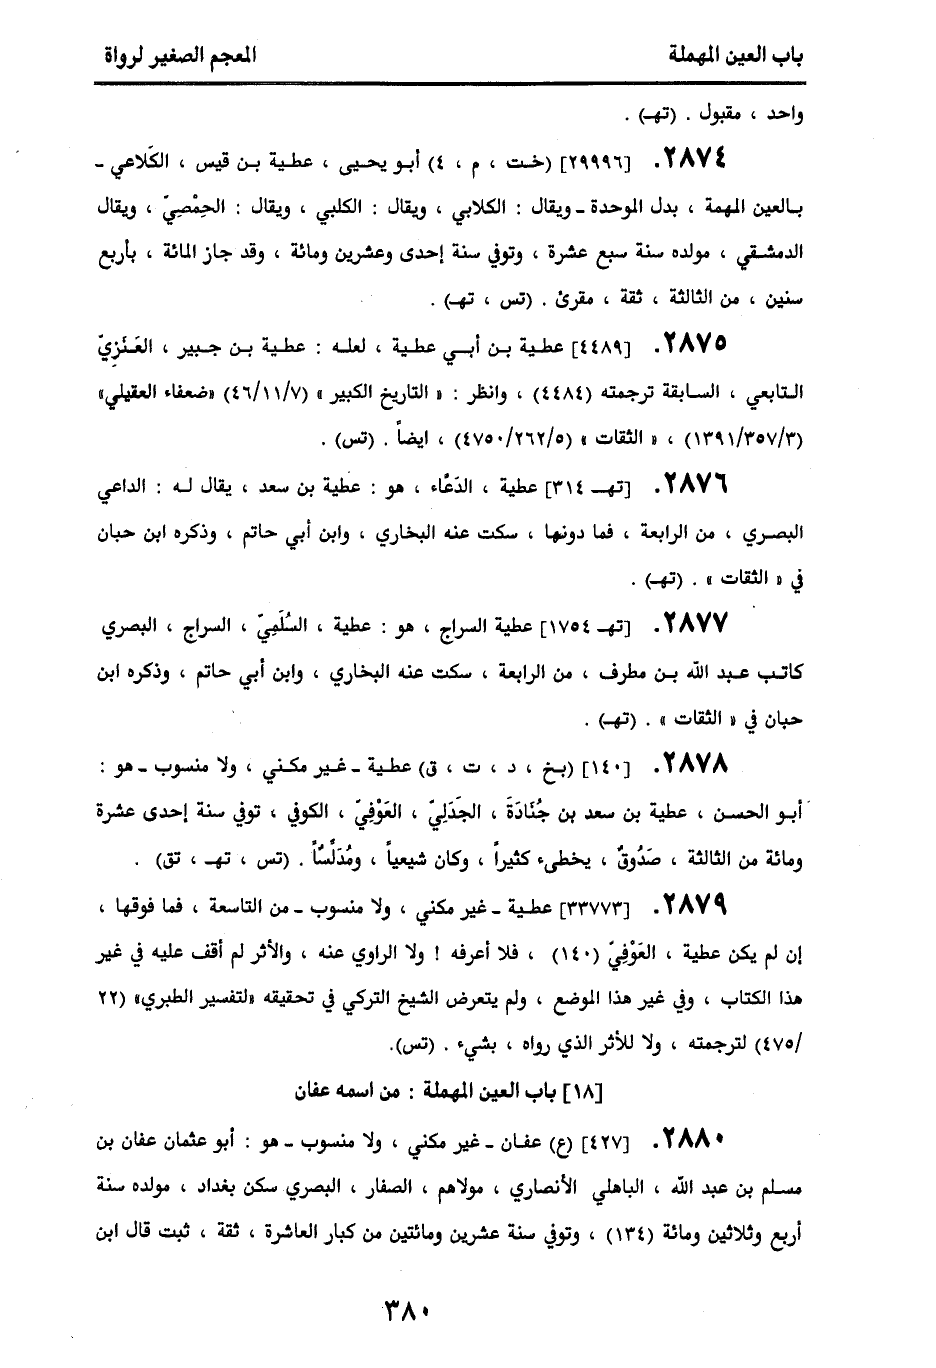 باب العين المهملة
المعجم الصغير لرواة
واحد ، مقبول . (تهـ) .
٢٨٧٤. [٢٩٩٩٦] (خت ، م ، ٤) أبو يحيى ، عطية بن قيس ، الكَلاعي ـ
بالعين المهمة ، بدل الموحدة ـ ويقال : الكلابي ، ويقال : الكلبي ، ويقال : الحِمْصِيّ ، ويقال
الدمشقي ، مولده سنة سبع عشرة ، وتوفي سنة إحدى وعشرين ومائة ، وقد جاز المائة ، بأربع
سنين ، من الثالثة ، ثقة ، مقرئ . (تس ، تهـ) .
٢٨٧٥. [٤٤٨٩] عطية بن أبي عطية ، لعله : عطية بن جبير ، العَنَزِيّ
التابعي ، السابقة ترجمته (٤٤٨٤) ، وانظر : « التاريخ الكبير » (٤٦/١١/٧) «ضعفاء العقيلي»
(١٣٩١/٣٥٧/٣) ، « الثقات » (٤٧٥٠/٢٦٢/٥) ، ايضاً . (تس) .
٢٨٧٦. [تهـ ٣١٤] عطية ، الدَعَّاء ، هو : عطية بن سعد ، يقال له : الداعي
البصري ، من الرابعة ، فما دونها ، سكت عنه البخاري ، وابن أبي حاتم ، وذكره ابن حبان
في « الثقات » . (تهـ) .
٢٨٧٧. [تهـ ١٧٥٤] عطية السراج ، هو : عطية ، السُلَمِيّ ، السراج ، البصري
كاتب عبد الله بن مطرف ، من الرابعة ، سكت عنه البخاري ، وابن أبي حاتم ، وذكره ابن
حبان في « الثقات » . (تهـ) .
٢٨٧٨. [١٤٠] (بخ ، د ، ت ، ق) عطية ـ غير مكني ، ولا منسوب ـ هو :
أبو الحسن ، عطية بن سعد بن جُنَادَةَ ، الجَدَلِيّ ، العَوْفِيّ ، الكوفي ، توفي سنة إحدى عشرة
ومائة من الثالثة ، صَدُوقٌ ، يخطىء كثيراً ، وكان شيعياً ، ومُدَلِّسًا . (تس ، تهـ ، تق) .
٢٨٧٩. [٣٣٧٧٣] عطية ـ غير مكني ، ولا منسوب ـ من التاسعة ، فما فوقها ،
إن لم يكن عطية ، العَوْفِيّ (١٤٠) ، فلا أعرفه ! ولا الراوي عنه ، والأثر لم أقف عليه في غير
هذا الكتاب ، وفي غير هذا الموضع ، ولم يتعرض الشيخ التركي في تحقيقه «لتفسير الطبري» (٢٢
/٤٧٥) لترجمته ، ولا للأثر الذي رواه ، بشيء . (تس).
[١٨] باب العين المهملة : من اسمه عفان
٢٨٨٠. [٤٢٧] (ع) عفان ـ غير مكني ، ولا منسوب ـ هو : أبو عثمان عفان بن
مسلم بن عبد الله ، الباهلي الأنصاري ، مولاهم ، الصفار ، البصري سكن بغداد ، مولده سنة
أربع وثلاثين ومائة (١٣٤) ، وتوفي سنة عشرين ومائتين من كبار العاشرة ، ثقة ، ثبت قال ابن
٣٨٠